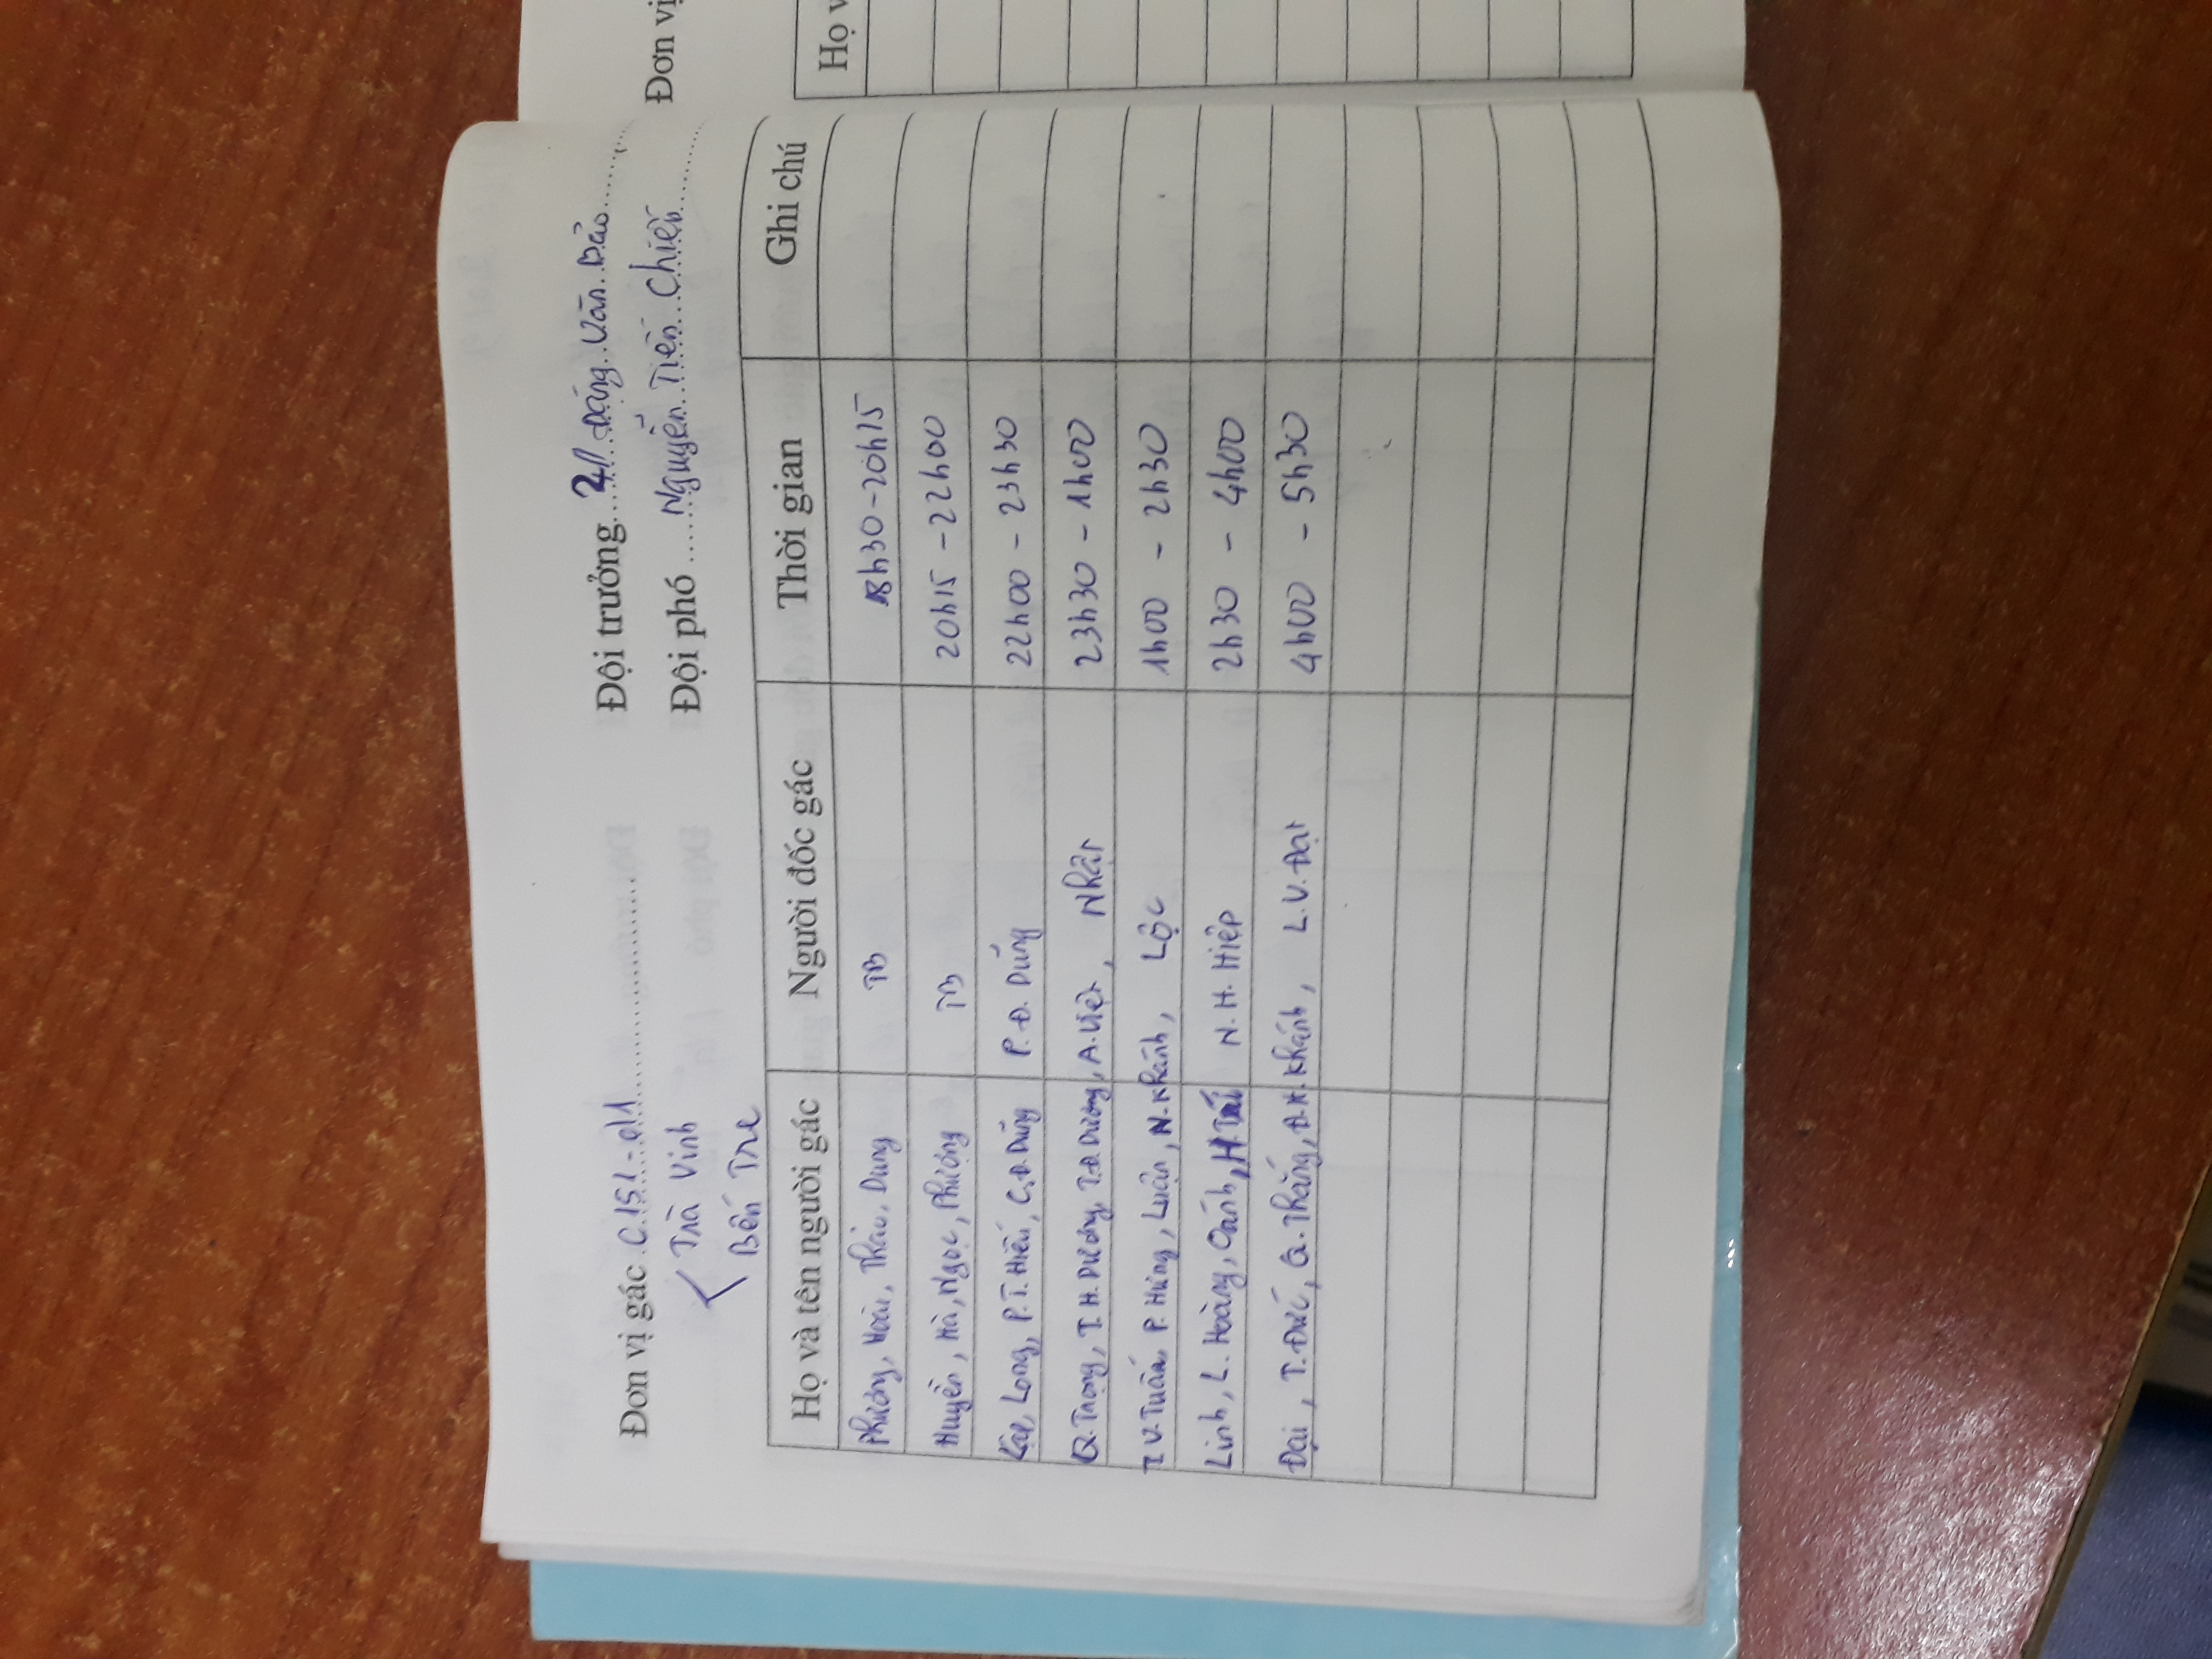 Đơn vị gác C151-d11
Đội trưởng 2// Đặng Văn Bảo
Trà Vinh
Bến Tre
Đội phó Nguyễn Tiến Chiến
Họ và tên người gác Người đốc gác Thời gian Ghi chú
Phương, Hoài, Thảo, Dung TB 18h30-20h15
Huyền, Hà, Ngọc, Phương TB 20h15-22h00
Long, P.T.Hiếu, C.Đ.Dũng P.Đ. Dũng 22h00 - 23h30
Q.Trọng, T.H.Dương, T.Đ.Dương, A.Việt, Nhật 23h30 - 1h00
T.V.Tuấn, P.Hưng, Luận, N.Khánh, Lộc 1h00 - 2h30
Linh, L. Hoàng, Oánh, H.Tài N.H. Hiệp 2h30 - 4h00
Đại, T.Đức, Q.Thắng, Đ.H.Khánh, L.V.Đạt 4h00 - 5h30
Đơn vị
Họ v